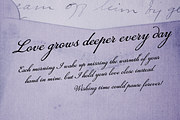 Love grows deeper every day
Each morning I wake up missing the warmth of your
hand in mine, but I hold your love close instead.
Wishing time could pause forever!